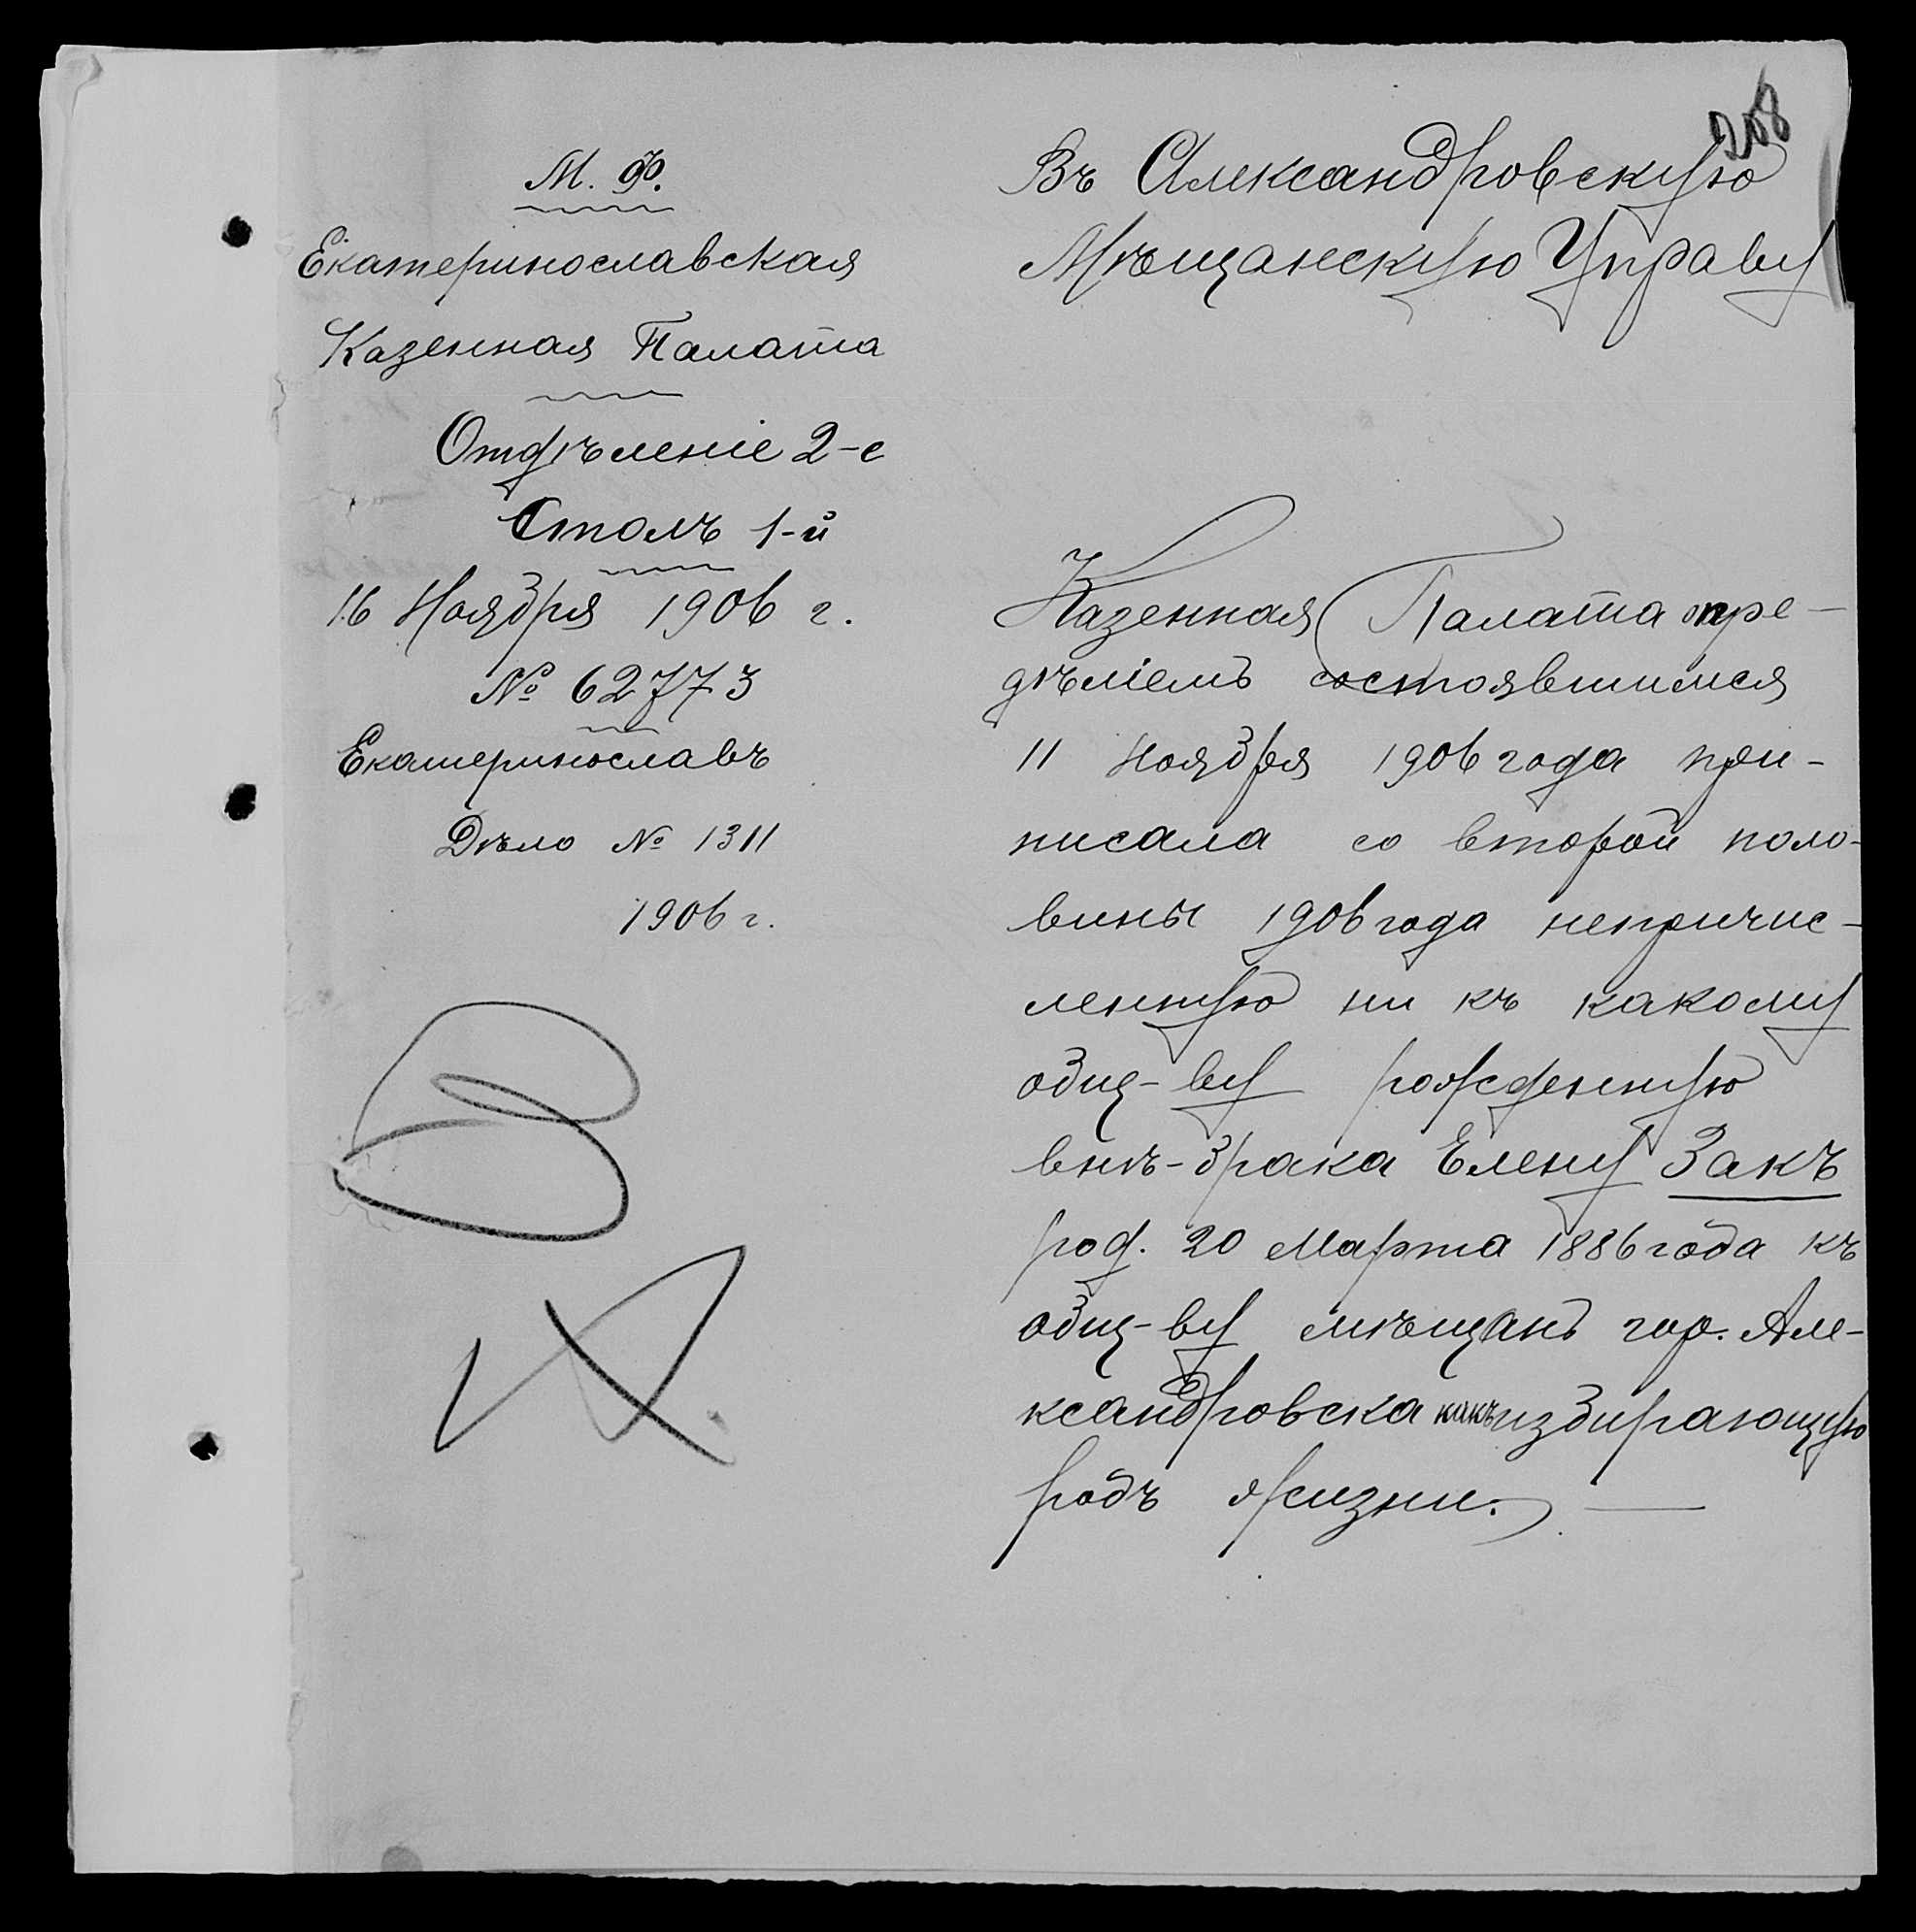 М. Ф.
Екатеринославская
Казенная Палата
Отдѣленіе 2-е
Столъ 1-й
16 Ноября 1906 г.
№ 62773
Екатеринославъ
Дѣло № 1311
1906 г.
268
Въ Александровскую
Мѣщанскую Управу
Казенная Палата опре-
дѣліемъ состоявшимся
11 Ноября 1906 года при-
писала со второй поло-
вины 1906 года непричис-
ленную ни къ какому
общ-ву рожденную
внѣ-брака Елену Закъ
род. 20 Марта 1886 года къ
общ-ву мѣщанъ гор. Але-
ксандровска какъ избирающую
родъ жизни. —